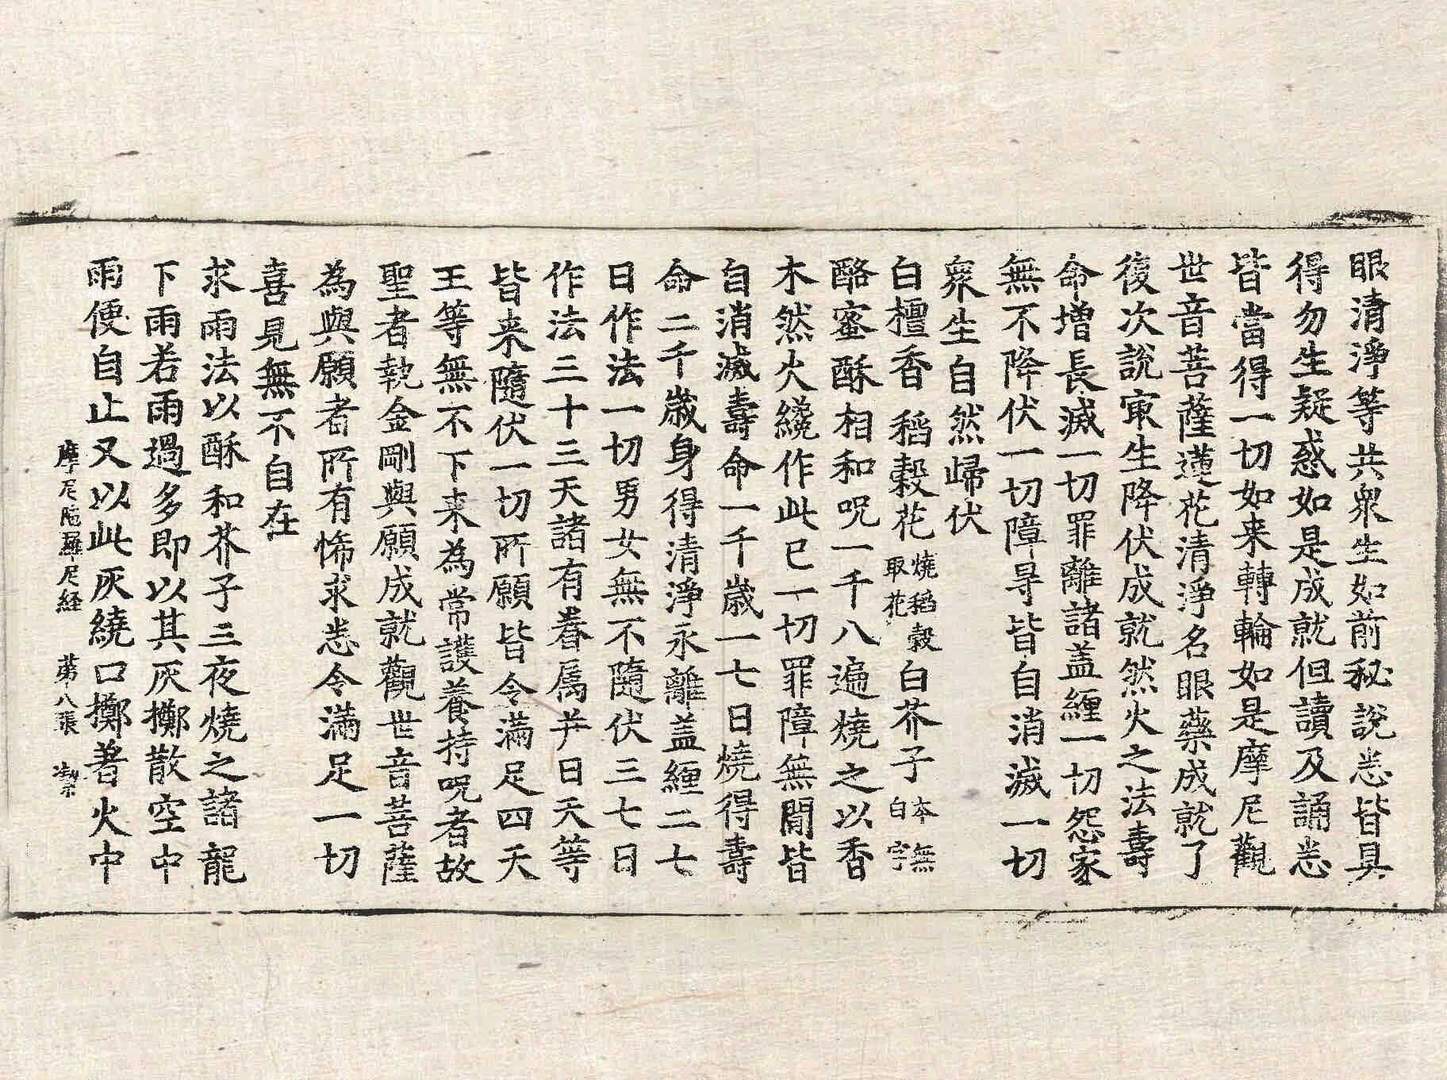 眼清淨等共衆生如前秘說悉皆具
得勿生疑惑如是成就但讀及誦悉
皆當得一切如来轉輪如是摩尼觀
世音菩薩蓮花清淨名眼藥成就了
復次說冣生降伏成就然火之法壽
命增長滅一切罪離諸盖纏一切怨家
無不降伏一切障㝵皆自消滅一切
衆生自然歸伏
白檀香稻穀花燒稻穀取花白芥子本無白字
酪蜜酥相和呪一千八遍燒之以香
木然火纔作此已一切罪障無閒皆
自消滅壽命一千歲一七日燒得壽
命二千歲身得清淨永離盖纏二七
日作法一切男女無不隨伏三七日
作法三十三天諸有眷属并日天等
皆来隨伏一切所願皆令滿足四天
王等無不下来為常護養持呪者故
聖者執金剛與願成就觀世音菩薩
為與願者所有悕求悉令滿足一切
喜見無不自在
求雨法以酥和芥子三夜燒之諸龍
下雨若雨過多即以其灰擲散空中
雨便自止又以此灰繞口擲著火中
摩尼陁羅尼経 苐十八張